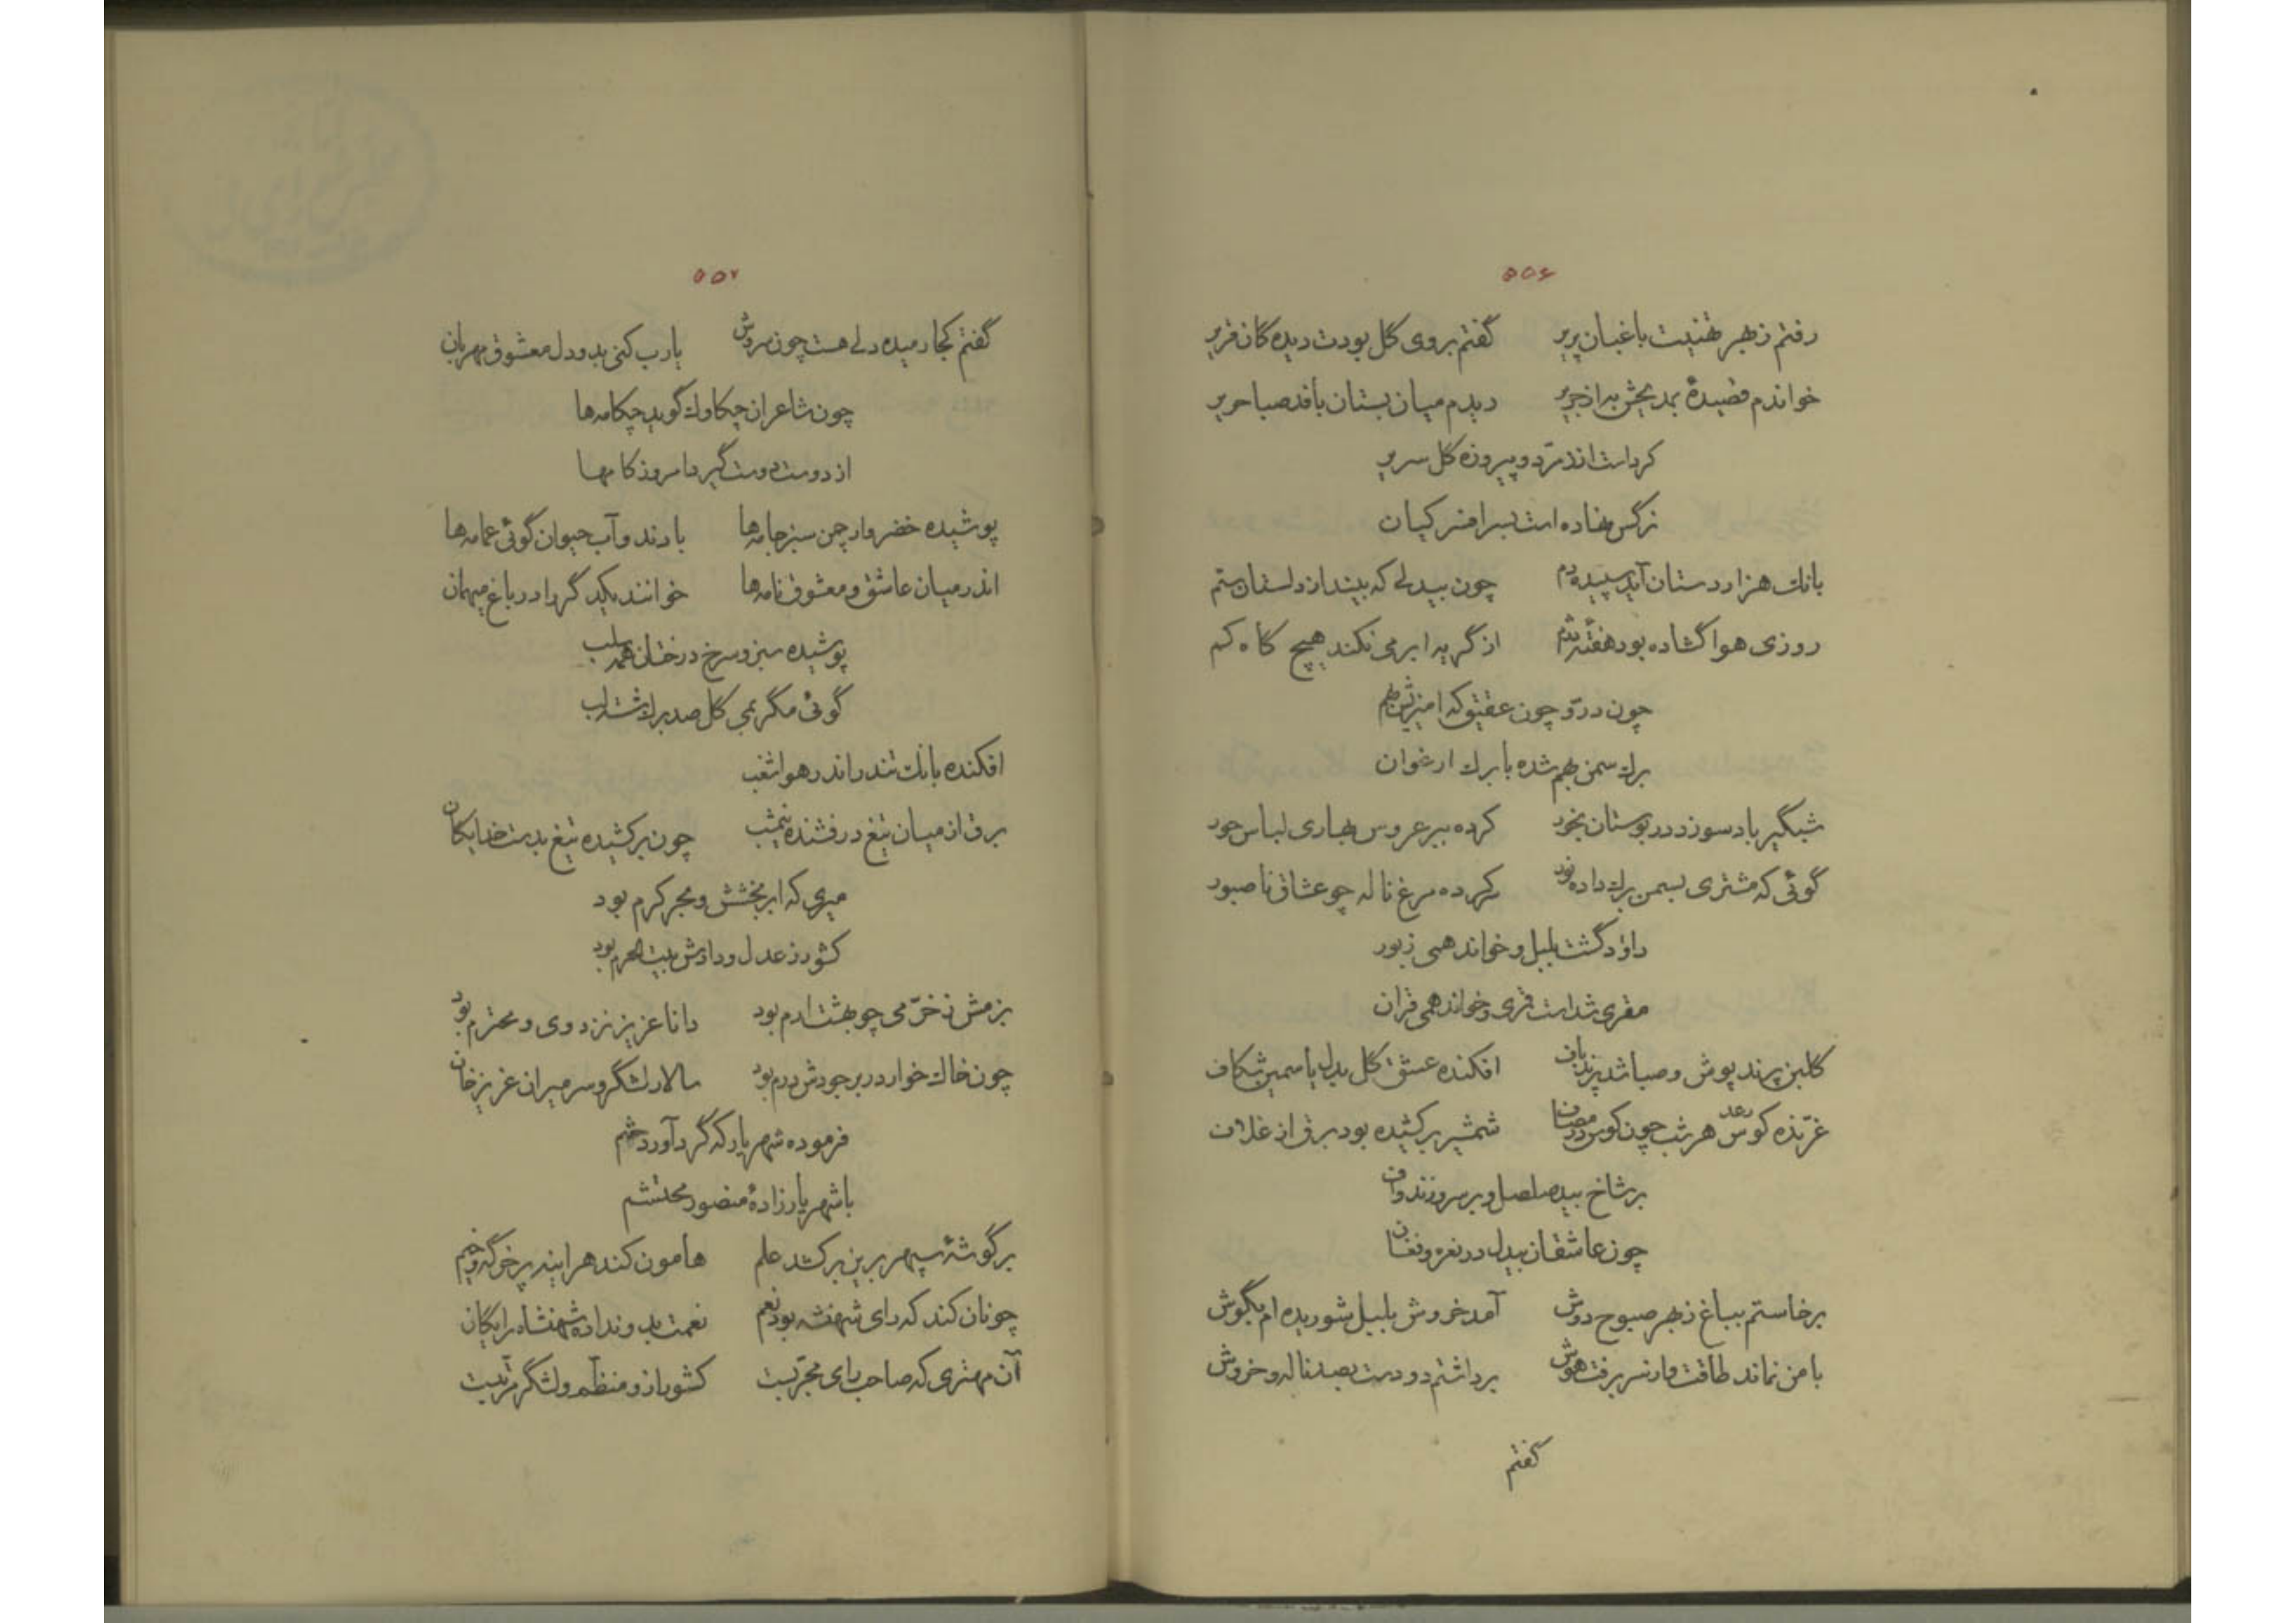 ۵۵۶
رفتم ز بهر تهنیت باغبان پریر گفتم بروی گل بودت دیدگان قریر
خواندم قصیدهٔ بمدیحش به از جریر دیدم میان بستان بافد صبا حریر
کرداست از زمرّد و پیروزه گل سریر
نرگس نهاده است بسر افسر کیان
بانك هزاردستان آید سپیده‌دم چون بیدلی که بیند از دلستان ستم
روزی هوا گشاده بود هفتهٔ دژم از گریه ابر می نکند هیچ گاه کم
چون درّ و چون عقیق که آمیزیش بهم
برك سمن بهم شده با برك ارغوان
شبگیر باد سوزد در بوستان بخور کرده ببر عروس بهاری لباس حور
گوئی که مشتری بسمن برك داده نور کرده مرغ ناله چو عشاق ناصبور
داود گشت بلبل و خواند همی زبور
مقری شداست قمری و خواند همی قران
گلبن پرند پوش و صبا شد پرندباف افکنده عشق گل بدل یاسمین شکاف
غرّنده کوس رعد هر شب چون کوس در مصاف شمشیر برکشیده بود برق از غلاف
بر شاخ بید صلصل و بر سرو زندواف
چون عاشقان بیدل در نعره و فغان
برخاستم بباغ ز بهر صبوح دوش آمد خروش بلبل شوریده ام بگوش
با من نماند طاقت و از سر برفت هوش برداشتم دو دست بصد ناله و خروش
گفتم
۵۵۷
گفتم کجا رمیده دلی هست چون سروش یارب کنی بدو دل معشوق مهربان
چون شاعران چکاوك گوید چکامه‌ها
از دوست دوست گیرد امروز کامها
پوشیده خضروار چمن سبز جامه‌ها بارند و آب حیوان گوئی عمامه‌ها
اندر میان عاشق و معشوق نامه‌ها خوانند یکدگر را در باغ میهمان
پوشیده سبز و سرخ درختان همه سلب
گوئی مگر بمی گل صدبرك شسته لب
افکنده بانك تندر اندر هوا شغب
برق از میان تیغ درفشنده نیمشب چون برکشیده تیغ بدست خدایکان
میری که ابر بخشش و بحر کرم بود
کشور ز عدل و دادش بیت الحرم بود
بزمش ز خرّمی چو بهشت ارم بود دانا عزیز نزد وی و محترم بود
چون خاك خوار در بر جودش درم بود سالار لشگر و سر میران عزیزخان
فرموده شهریار که گرد آورد حشم
با شهریارزادهٔ منصور محتشم
بر گوشهٔ سپهر برین برکشد علم هامون کند هر اینه پر خرگه و خیم
چونان کند که رای شهنشه بود نعم نعمت بدو نداده شهنشاه رایگان
آن مهتری که صاحب رای مجرّبست کشور از و منظّم و لشگر مرتّبست